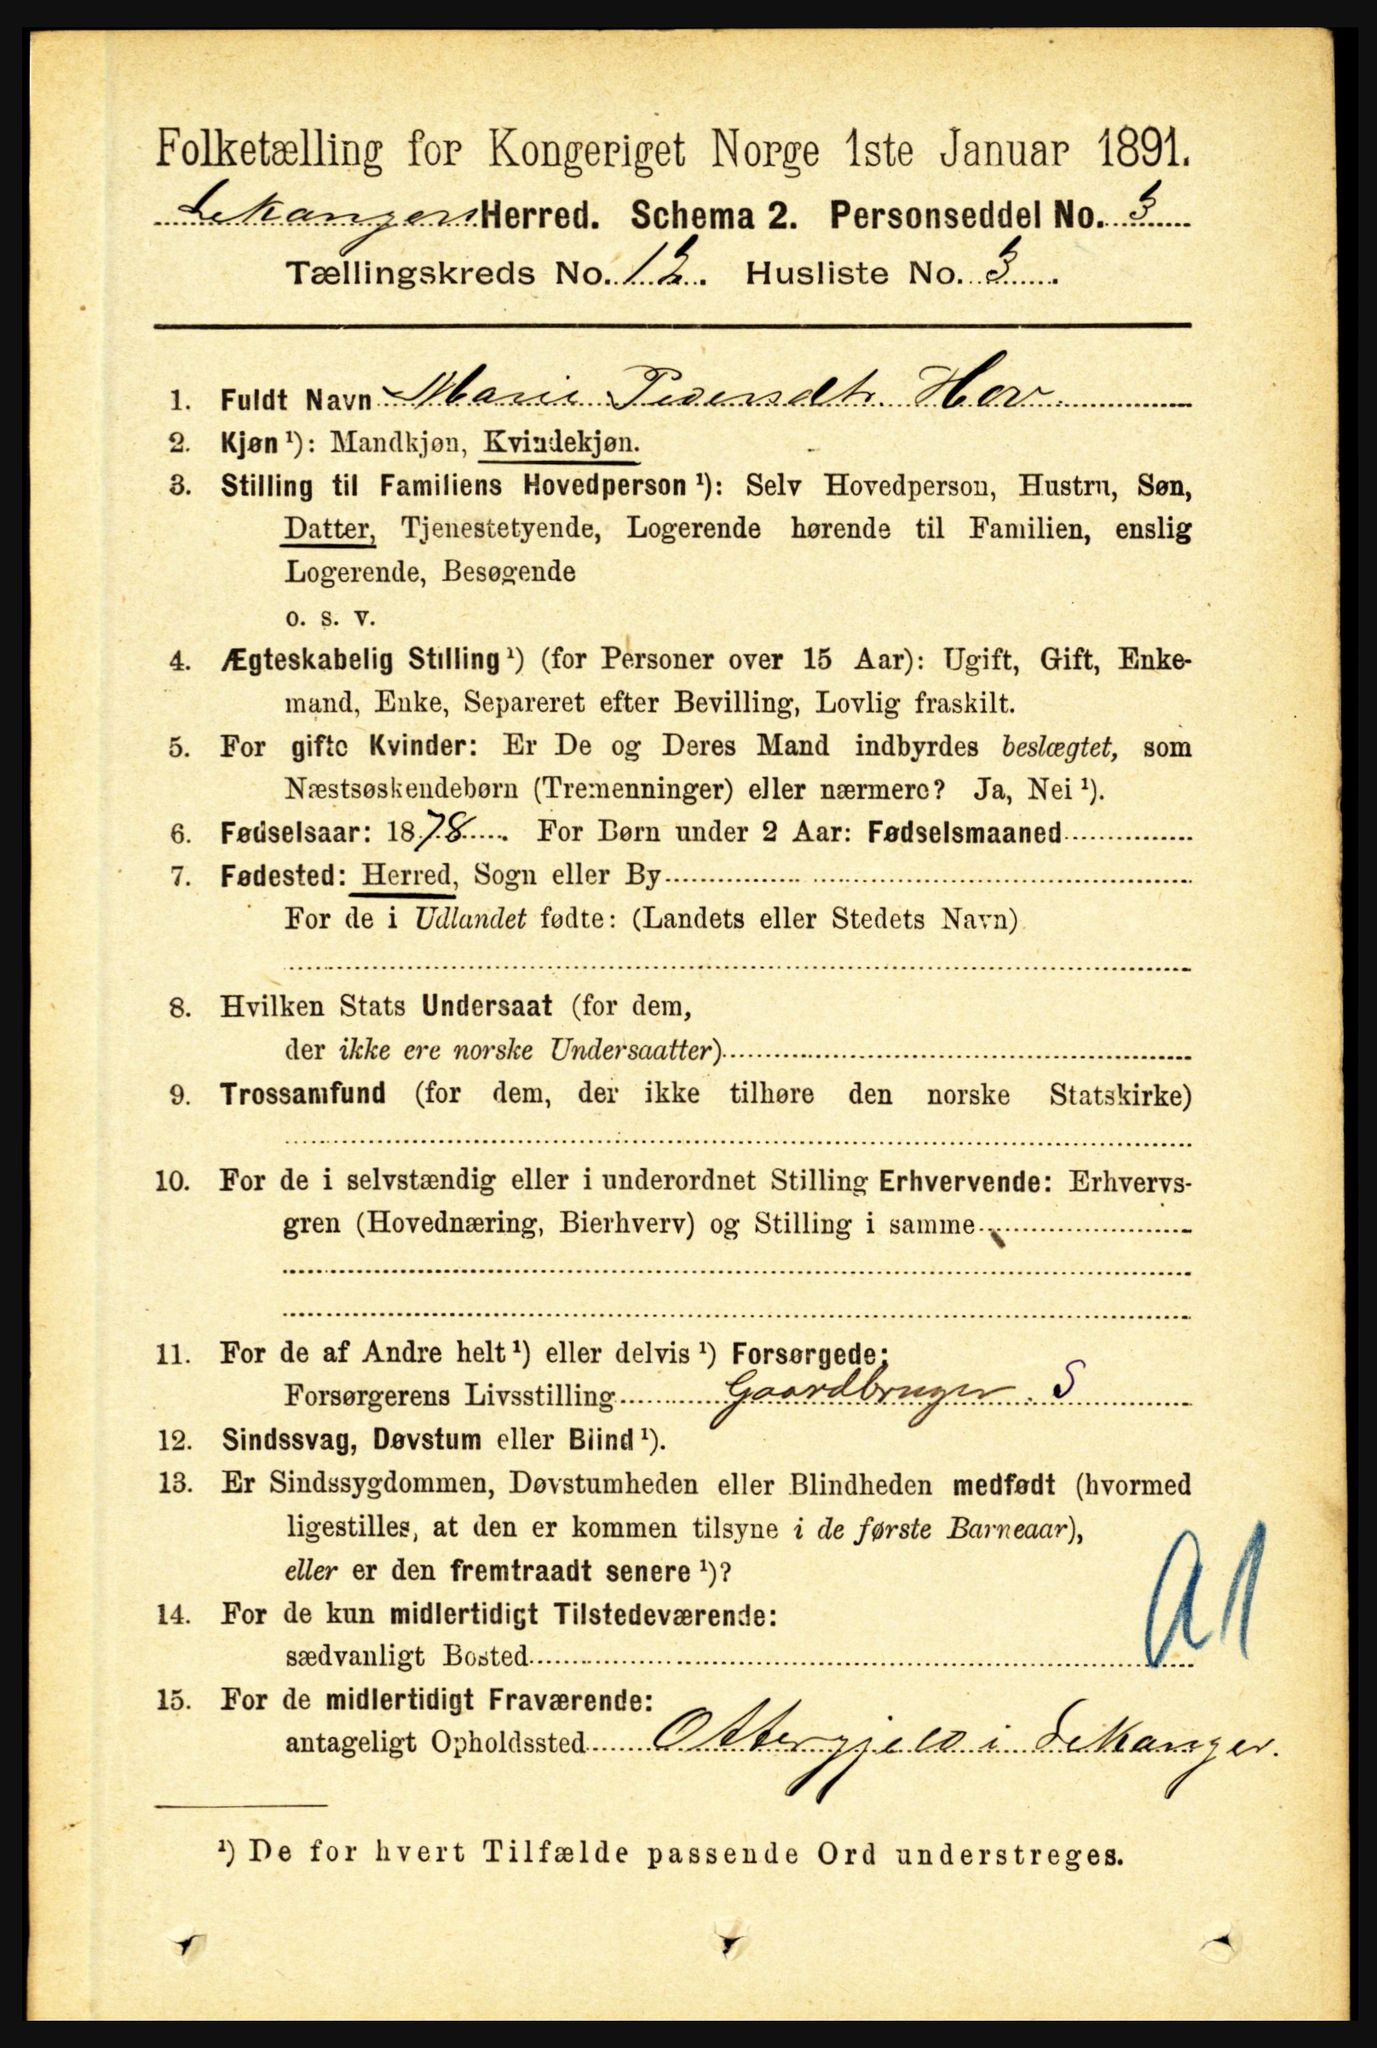 Folketælling for Kongeriget Norge 1ste Januar 1891.
Lekangers Herred. Schema 2. Personseddel No. 3
Tællingskreds No. 12. Husliste No. 3.
1. Fuldt Navn Marie Pedersdtr. Hov.
2. Kjøn ¹): Mandkjøn, Kvindekjøn.
3. Stilling til Familiens Hovedperson ¹): Selv Hovedperson, Hustru, Søn,
Datter, Tjenestetyende, Logerende hørende til Familien, enslig
Logerende, Besøgende
o. s. v.
4. Ægteskabelig Stilling ¹) (for Personer over 15 Aar): Ugift, Gift, Enke-
mand, Enke, Separeret efter Bevilling, Lovlig fraskilt.
5. For gifte Kvinder: Er De og Deres Mand indbyrdes beslægtet, som
Næstsøskendebørn (Tremenninger) eller nærmere? Ja, Nei ¹).
6. Fødselsaar: 1878. For Børn under 2 Aar: Fødselsmaaned
7. Fødested: Herred, Sogn eller By
For de i Udlandet fødte: (Landets eller Stedets Navn)
8. Hvilken Stats Undersaat (for dem,
der ikke ere norske Undersaatter)
9. Trossamfund (for dem, der ikke tilhøre den norske Statskirke)
10. For de i selvstændig eller i underordnet Stilling Erhvervende: Erhvervs-
gren (Hovednæring, Bierhverv) og Stilling i samme
11. For de af Andre helt ¹) eller delvis ¹) Forsørgede:
Forsørgerens Livsstilling Gaardbruger. S
12. Sindssvag, Døvstum eller Blind ¹).
13. Er Sindssygdommen, Døvstumheden eller Blindheden medfødt (hvormed
ligestilles, at den er kommen tilsyne i de første Barneaar),
eller er den fremtraadt senere ¹)?
14. For de kun midlertidigt Tilstedeværende:
sædvanligt Bosted
a1
15. For de midlertidigt Fraværende:
antageligt Opholdssted Ottergjeld i Lekanger.
¹) De for hvert Tilfælde passende Ord understreges.